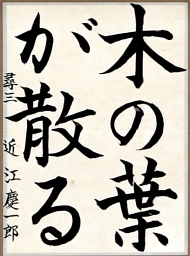 木の葉
が散る
尋三 近江慶一郎